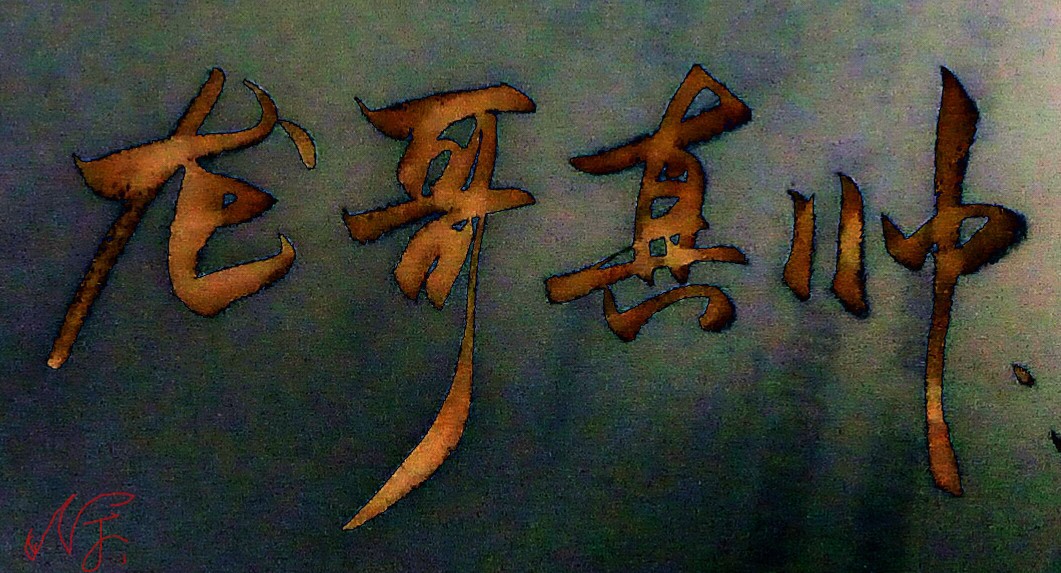 龙哥真帅